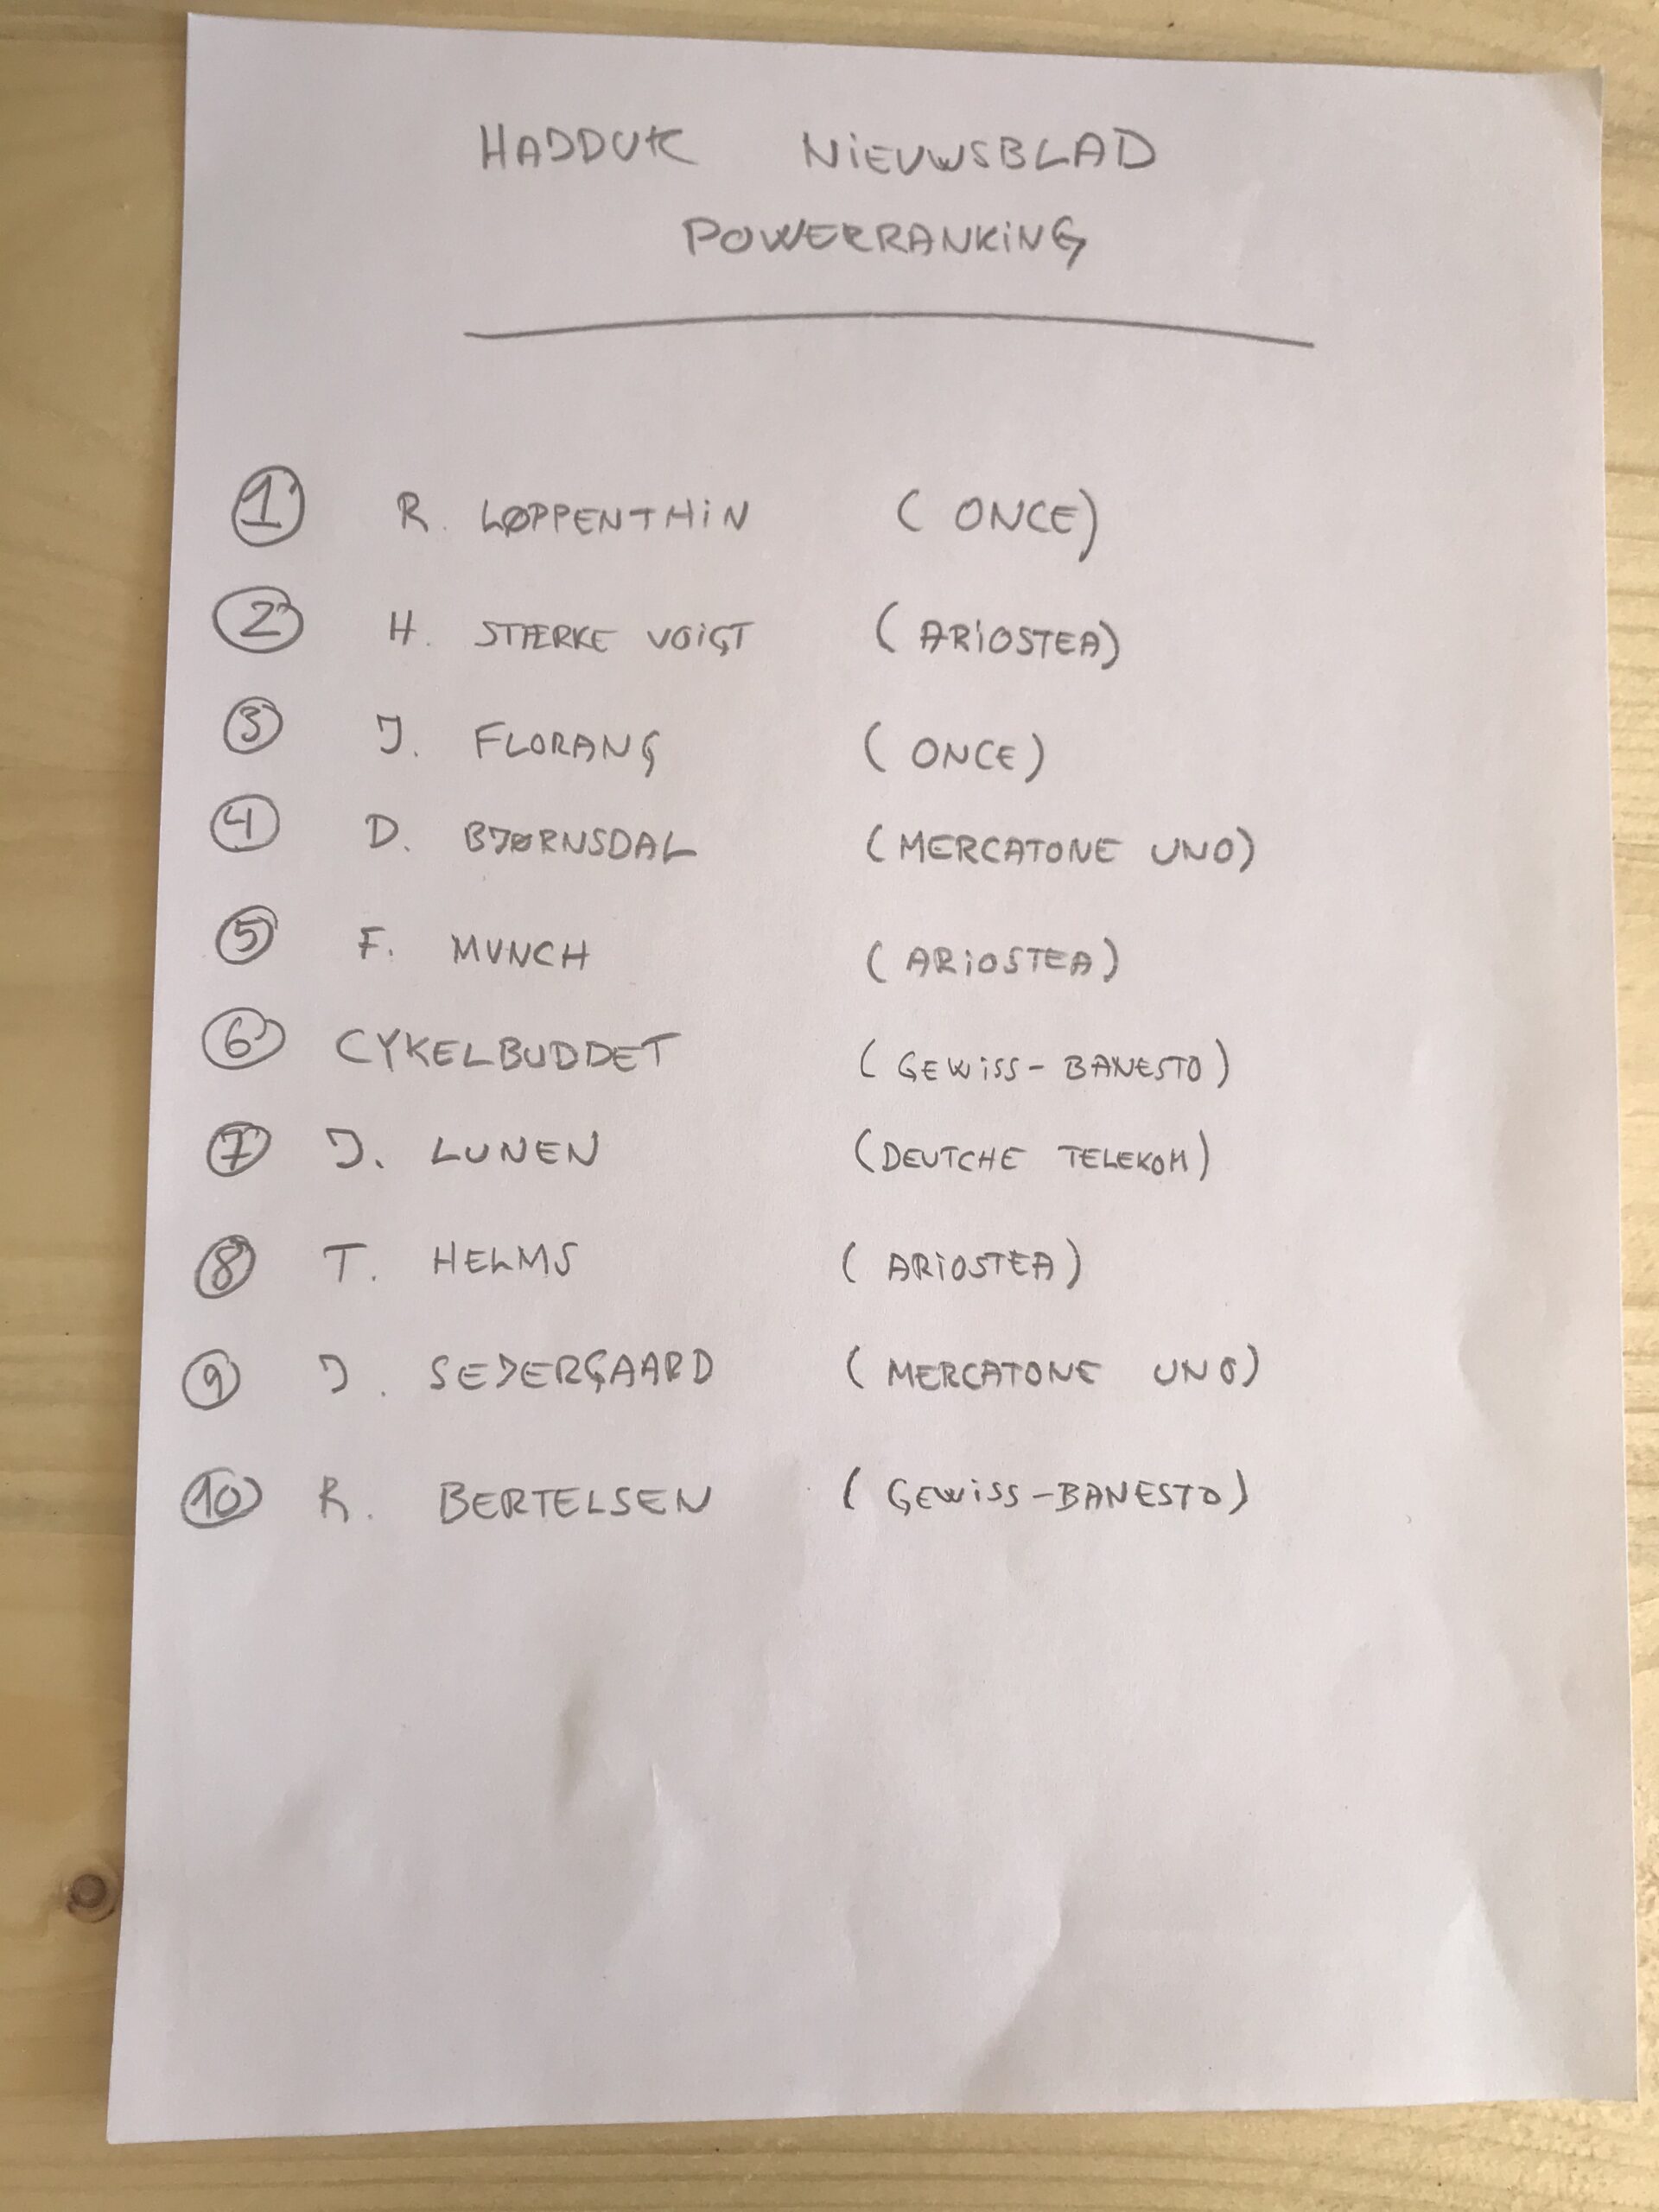 HADDUK NIEUWSBLAD
POWERRANKING
1 R. LØPPENTHIN (ONCE)
2 H. STÆRKE VOIGT (ARIOSTEA)
3 J. FLORANG (ONCE)
4 D. BJØRNSDAL (MERCATONE UNO)
5 F. MUNCH (ARIOSTEA)
6 CYKELBUDDET (GEWISS-BANESTO)
7 J. LUNEN (DEUTCHE TELEKOM)
8 T. HELMS (ARIOSTEA)
9 J. SEJERGAARD (MERCATONE UNO)
10 R. BERTELSEN (GEWISS-BANESTO)